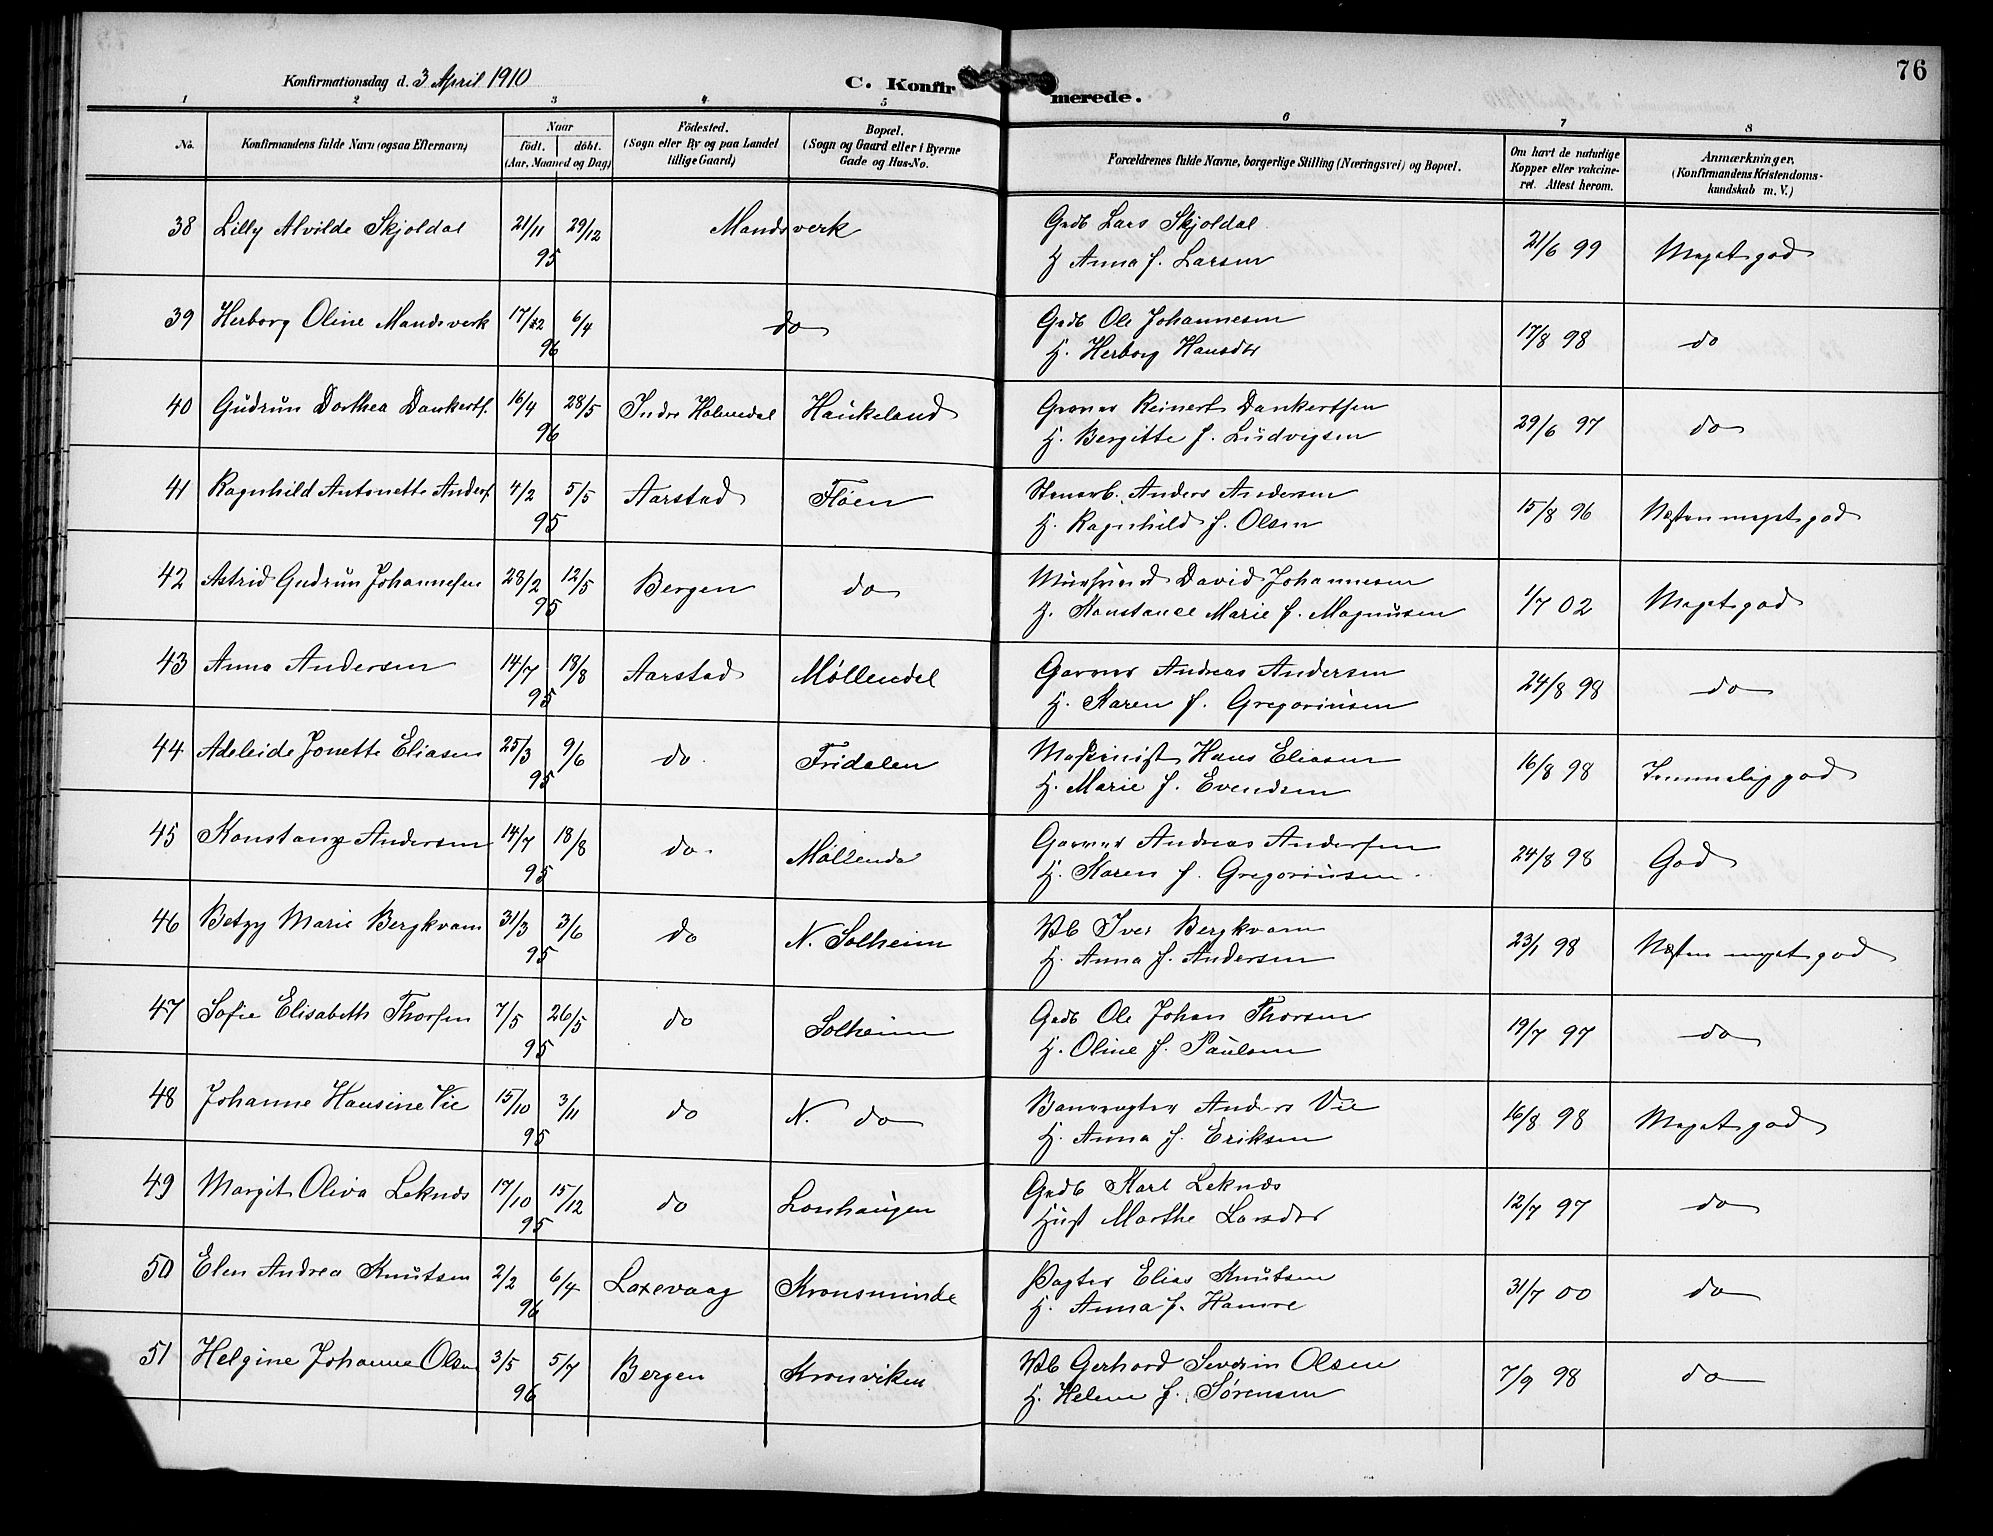 76
Konfirmationsdag d. 3 April 1910
C. Konfirmerede.
1 2 3 4 5 6 7 8
No. | Konfirmandens fulde Navn (ogsaa Efternavn) | Naar födt. döbt. (Aar, Maaned og Dag) | Födested. (Sogn eller By og paa Landet tillige Gaard) | Bopæl. (Sogn og Gaard eller i Byerne Gade og Hus-No. | Forældrenes fulde Navne, borgerlige Stilling (Næringsvei) og Bopæl. | Om havt de naturlige Kopper eller vakcineret. Attest herom. | Anmærkninger. (Konfirmandens Kristendomskundskab m. V.)
38 Lilly Alvilde Skjoldal 21/11 29/12 Mandsverk Grdb Lars Skjoldal 21/6 99 Meget god
95 H Anna f. Larsen
39 Herborg Oline Mandsverk 17/12 6/4 do Grdb Ole Johannesen 17/8 98 do
96 H. Herborg Hansdtr
40 Gudrun Dorthea Dankerts. 16/4 28/5 Indre Holmedal Haukeland Garver Reinert Dankertsen 29/6 97 do
96 H. Bergitte f. Ludvigsen
41 Ragnhild Antonette Anders. 4/2 5/5 Aarstad Fløen Stenarb. Anders Andersen 15/8 96 Næsten meget god
95 H. Ragnhild f. Olsen
42 Astrid Gudrun Johannesen 28/2 12/5 Bergen do Mursvend David Johannesen 1/7 02 Meget god
95 H. Konstance Marie f. Magnusen
43 Anna Andersen 14/7 18/8 Aarstad Møllendal Garver Andreas Andersen 24/8 98 do
95 H. Karen f. Gregoriusen
44 Adeleide Jonette Eliasen 25/3 9/6 do. Fridalen Maskinist Hans Eliasen 16/8 98 Temmelig god
95 H. Marie f. Evendsen
45 Konstanze Andersen 14/7 18/8 do. Møllendal Garver Andreas Andersen 24/8 98 God
95 H. Karen f. Gregoriusen
46 Betzy Marie Bergkvam 31/3 3/6 do N. Solheim Vb Iver Bergkvam 23/1 98 Næsten meget god
95 H. Anna f. Andersen
47 Sofie Elisabeth Thorsen 7/5 26/5 do Solheim Grdb Ole Johan Thorsen 19/7 97 do
95 H. Oline f. Paulsen
48 Johanne Hansine Vie 15/10 3/11 do N. do Banevogter Anders Vie 16/8 98 Meget god
95 H. Anna f. Eriksen
49 Margit Oliva Leknes 17/10 15/12 do Lonhaugen Grdb Karl Leknes 12/7 97 do
95 Hust Marthe Larsdtr
50 Elen Andrea Knutsen 2/2 6/4 Laxevaag Kronsminde Pagter Elias Knutsen 31/7 00 do
96 H. Anna f. Hamre
51 Helgine Johanne Olsen 3/5 5/7 Bergen Kronviken Vb Gerhard Severin Olsen 7/9 98 do
96 H. Helene f. Sørensen